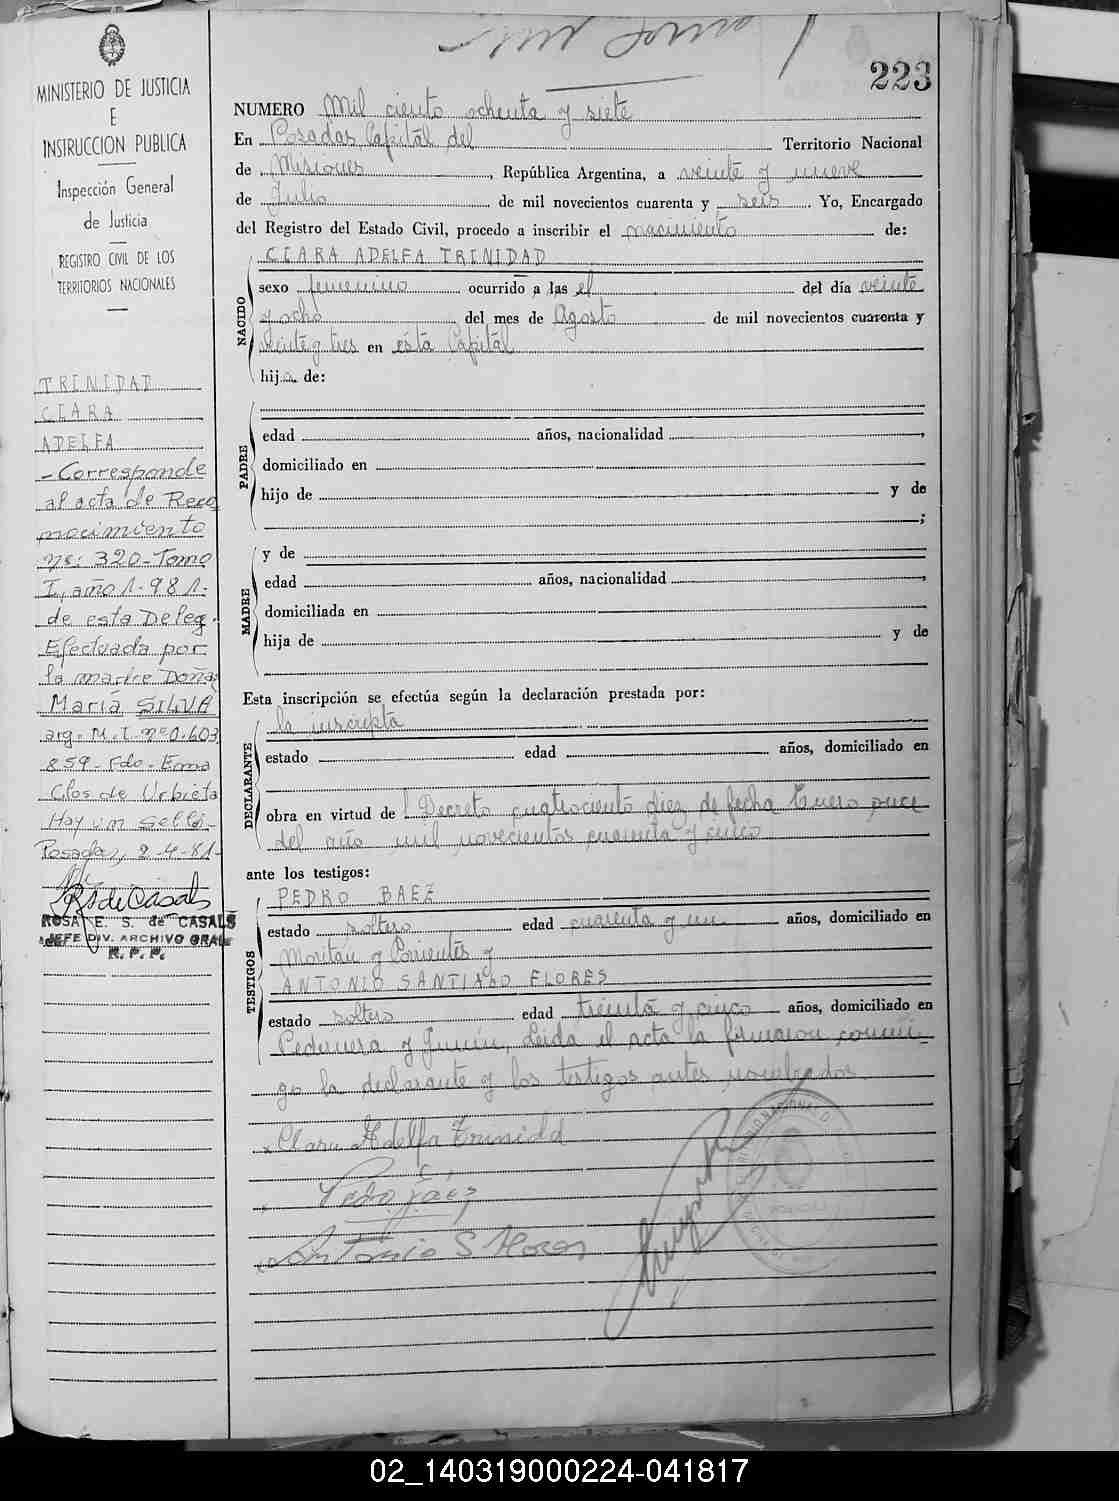 223
MINISTERIO DE JUSTICIA
E
INSTRUCCION PUBLICA
Inspección General
de Justicia
REGISTRO CIVIL DE LOS
TERRITORIOS NACIONALES
TRINIDAD
CLARA
ADELFA
-Corresponde
al acta de Reco
nocimiento
nº: 320-Tomo
I, año 1.981.
de esta Deleg.
Efectuada por
la madre Doña
María SILVA
arg. M.I. nº 0.603
859- Fdo. Ema
Clos de Urbieta
Hay un sello-
Posadas, 2-4-81-
RSdeCasals
ROSA E. S. de CASALS
JEFE DIV. ARCHIVO GRAL
R. P. P.
NUMERO Mil ciento ochenta y siete
En Posadas Capital del Territorio Nacional
de Misiones, República Argentina, a veinte y nueve
de Julio de mil novecientos cuarenta y seis. Yo, Encargado
del Registro del Estado Civil, procedo a inscribir el nacimiento de:
NACIDO
CLARA ADELFA TRINIDAD
sexo femenino ocurrido a las el del día veinte
y ocho del mes de Agosto de mil novecientos cuarenta y
veinte y tres en ésta Capital
hija de:
PADRE
edad años, nacionalidad ,
domiciliado en
hijo de y de
;
MADRE
y de
edad años, nacionalidad ,
domiciliada en
hija de y de
Esta inscripción se efectúa según la declaración prestada por:
DECLARANTE
la inscripta
estado edad años, domiciliado en
obra en virtud de l Decreto cuatrocientos diez de fecha Enero once
del año mil novecientos cuarenta y cinco
ante los testigos:
TESTIGOS
PEDRO BAEZ
estado soltero edad cuarenta y un años, domiciliado en
y Corrientes y
ANTONIO SANTIAGO FLORES
estado soltero edad treinta y cinco años, domiciliado en
Pedernera y Junin, Leída el acta la firmaron conmi-
go la declarante y los testigos antes nombrados.
Clara Adelfa Trinidd
Pedro Báez
Antonio S Flores
02_140319000224-041817